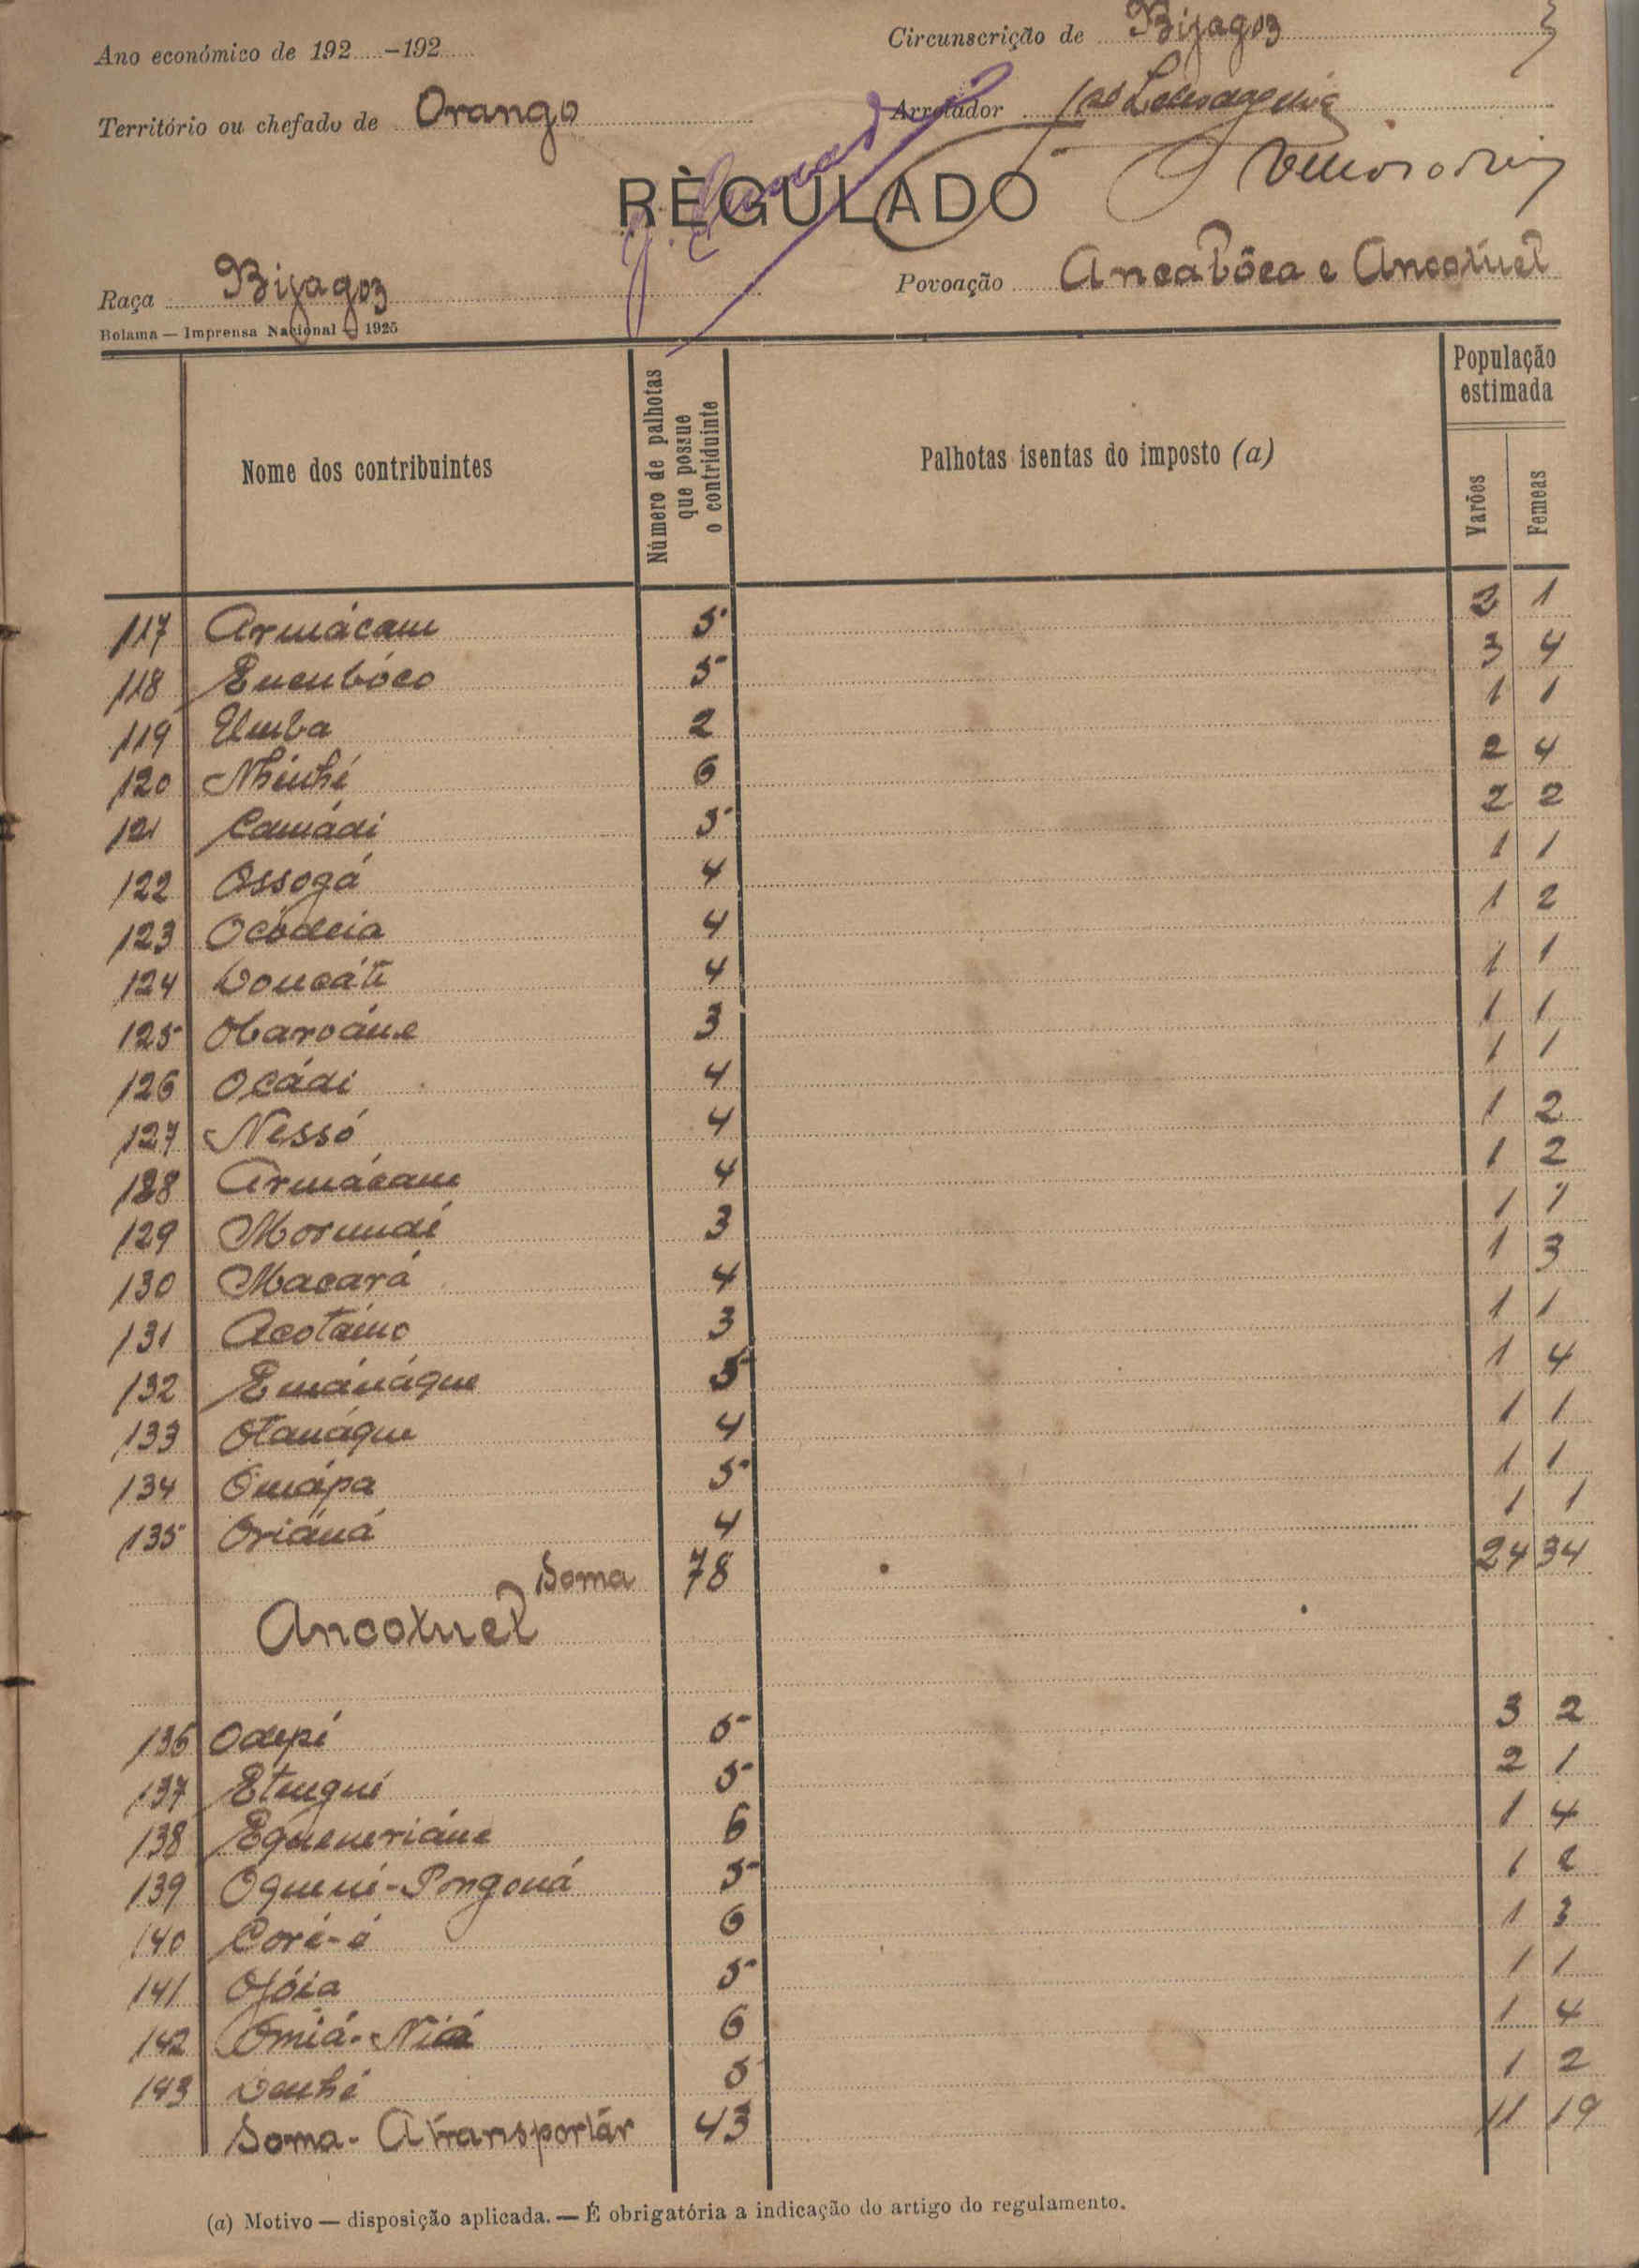 Ano económico de 192 -192
Circunscrição de Bijagoz
Território ou chefado de Orango
Arrolador
RÈGULADO
Raça Bijagoz
Povoação Ancabôca e Ancoxuel
Bolama — Imprensa Nacional — 1925
Nome dos contribuintes
Número de palhotas que possue o contriduinte
Palhotas isentas do imposto (a)
População estimada
Varões
Femeas
117 Armácam 5 2 1
118 Encubóco 5 3 4
119 Umba 2 1 1
120 Nhinhé 6 2 4
121 Camádi 5 2 2
122 Ossogá 4 1 1
123 4 1 2
124 4 1 1
125 Obaroáne 3 1 1
126 Ocádi 4 1 1
127 Nessó 4 1 2
128 Armácam 4 1 2
129 Morundé 3 1 1
130 Macará 4 1 3
131 Acotáino 3 1 1
132 Emánáque 5 1 4
133 Otanáque 4 1 1
134 Omápa 5 1 1
135 Oriáná 4 1 1
Soma 78 24 34
Ancoxuel
136 Odepi 5 3 2
137 Etengué 5 2 1
138 Equeneriáne 6 1 4
139 Oquené-Pongoná 5 1 2
140 Coré-é 6 1 3
141 Ojóia 5 1 1
142 Omiá-Niá 6 1 4
143 5 1 2
Soma - A transportár 43 11 19
(a) Motivo — disposição aplicada. — É obrigatória a indicação do artigo do regulamento.